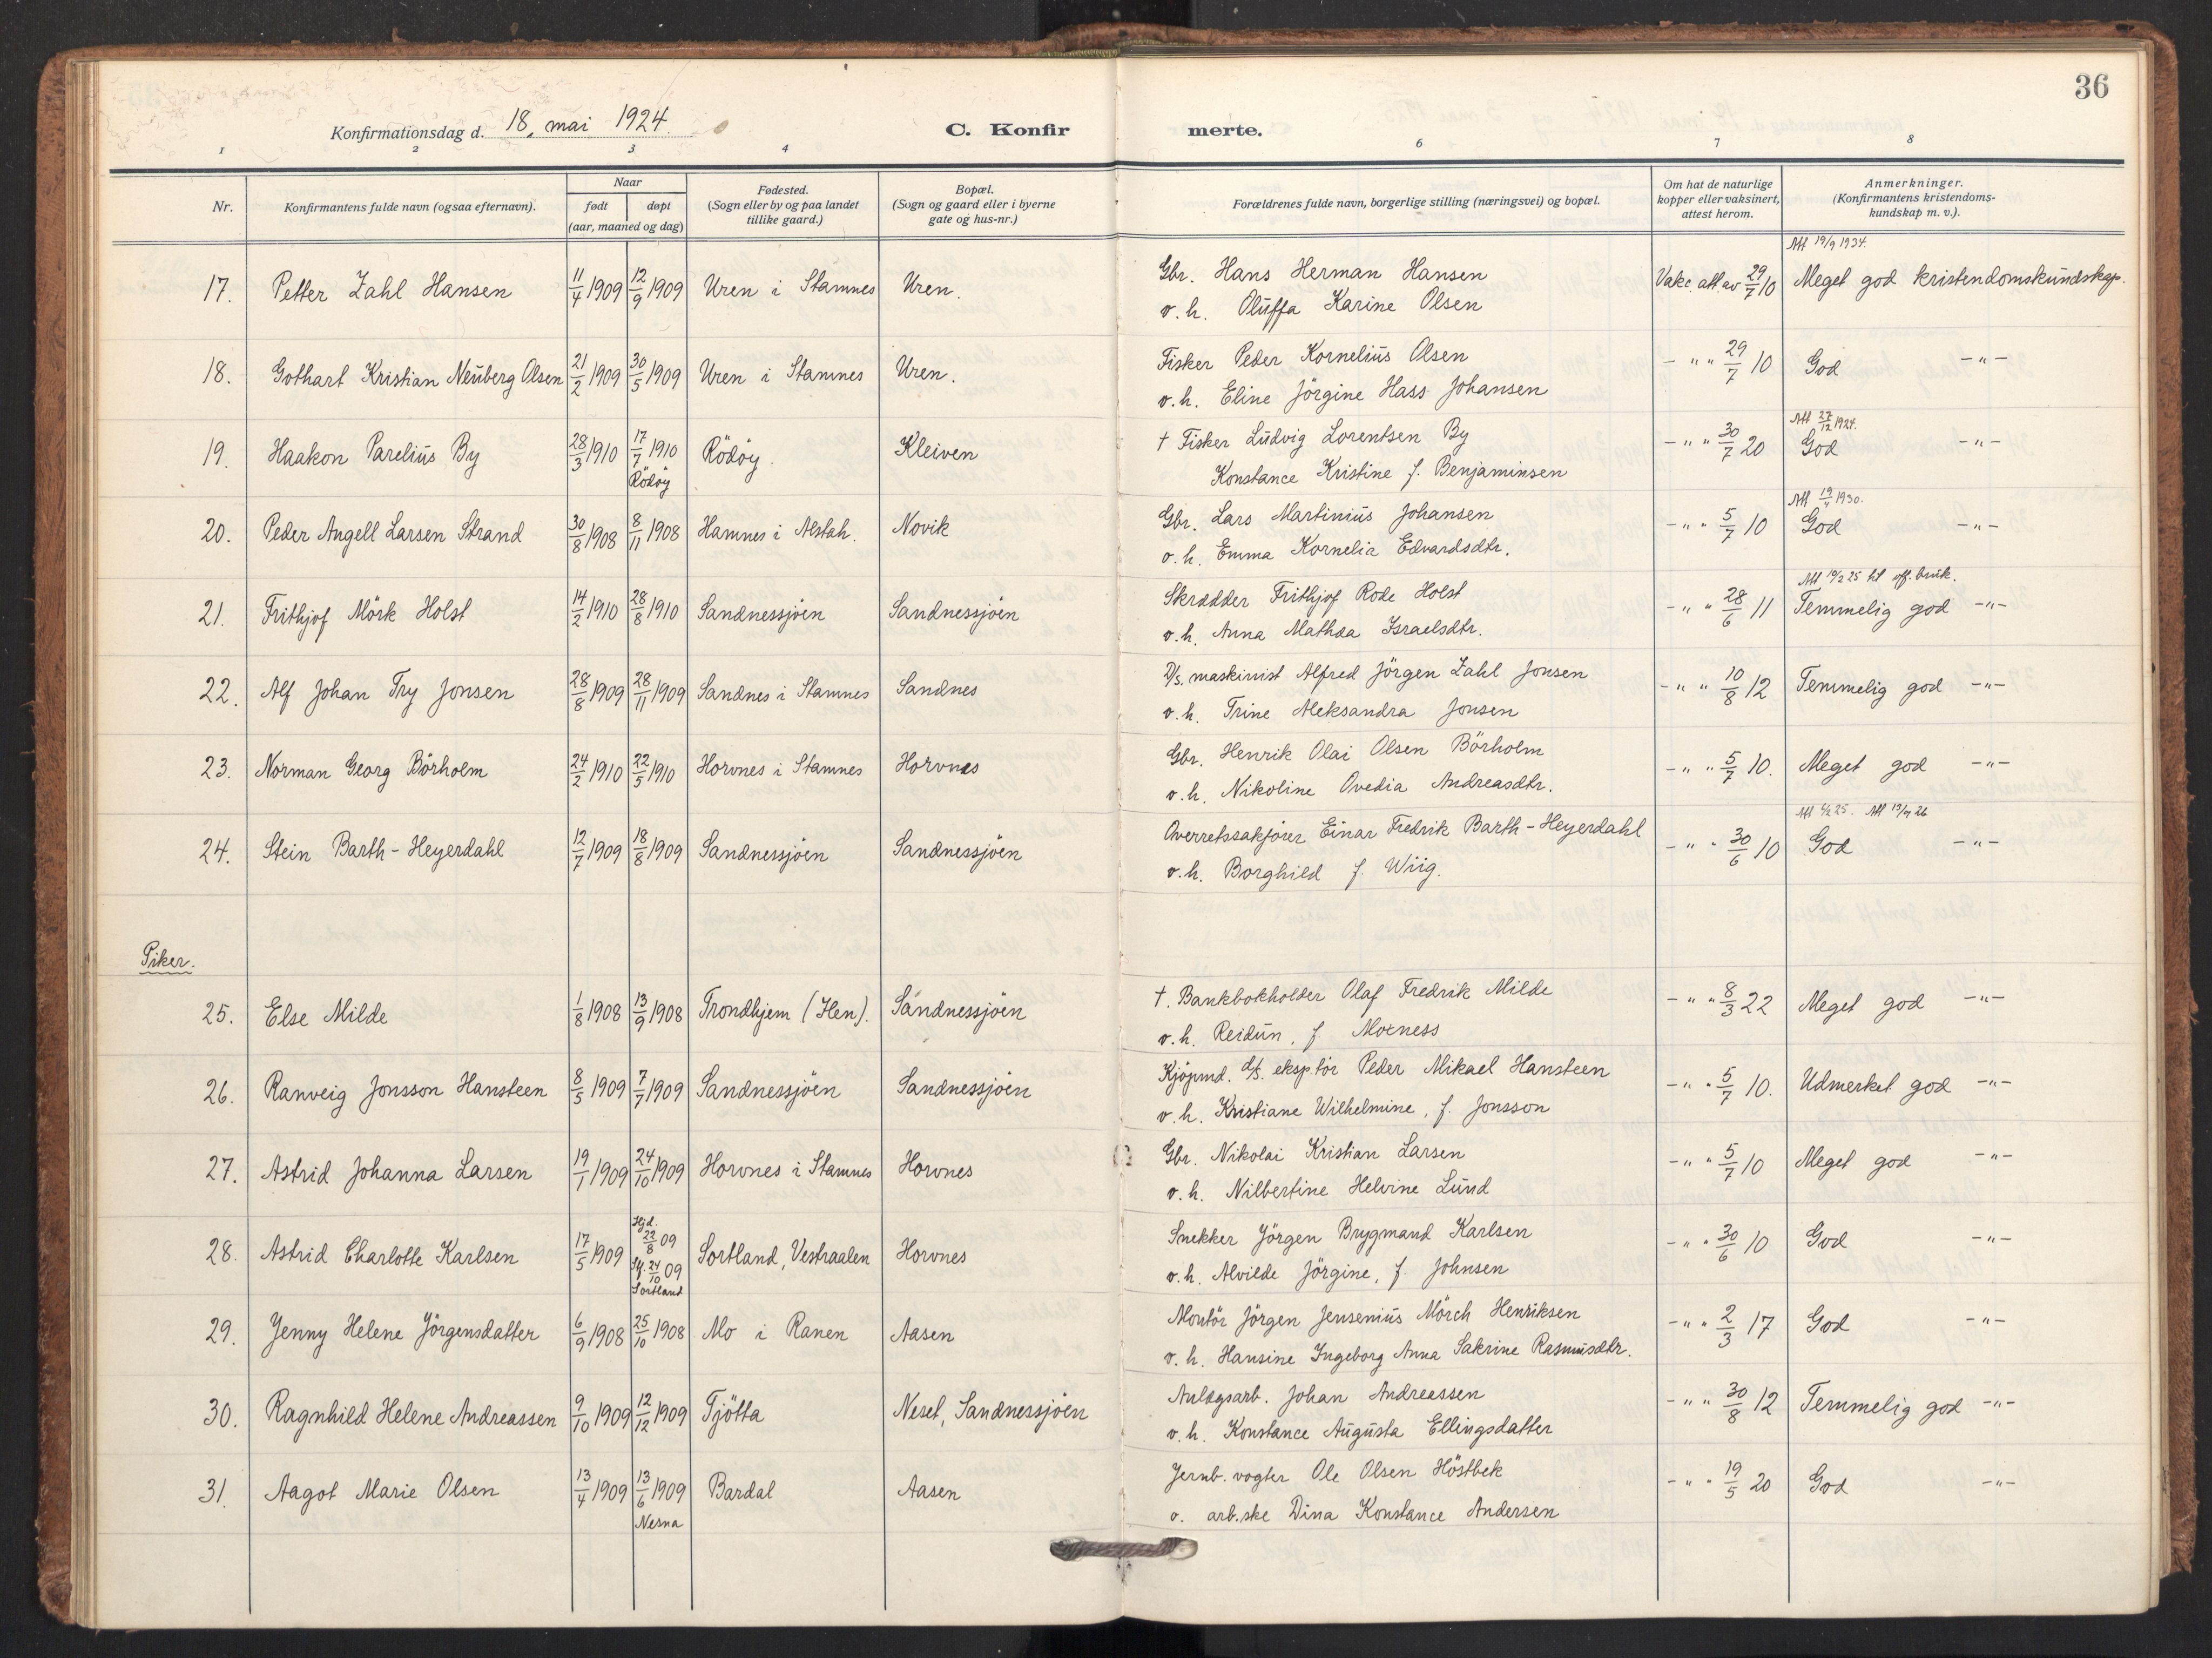 36
Konfirmationsdag d. 18. mai 1924.
C. Konfir
merte.
1 2 3 4 6 7 8
Nr.
Konfirmantens fulde navn (ogsaa efternavn).
Naar
født
døpt
(aar, maaned og dag)
Fødested.
(Sogn eller by og paa landet
tillike gaard.)
Bopæl.
(Sogn og gaard eller i byerne
gate og hus-nr.)
Forældrenes fulde navn, borgerlige stilling (næringsvei) og bopæl.
Om hat de naturlige
kopper eller vaksinert,
attest herom.
Anmerkninger.
(Konfirmantens kristendoms-
kundskap m. v.).
Att 19/9 1934.
17. Petter Zahl Hansen 11/4 1909 12/9 1909 Uren i Stamnes Uren. Gbr. Hans Herman Hansen Vakc. att. av 29/7 10 Meget god kristendomskundskap.
v. h. Oluffa Karine Olsen
18. Gothart Kristian Neuberg Olsen 21/2 1909 30/5 1909 Uren i Stamnes Uren. Fisker Peder Kornelius Olsen - " " 29/7 10 God -"-
v. h. Eline Jörgine Hass Johansen
Att 27/12 1924.
19. Haakon Parelius By 28/3 1910 17/7 1910 Rödöy. Kleiven † Fisker Ludvig Lorentsen By - " " 30/7 20 God -"-
Rödöy
Konstance Kristine f. Benjaminsen
Att 19/ 1930.
20. Peder Angell Larsen Strand 30/8 1908 8/11 1908 Hamnes i Alstah. Novik Gbr. Lars Martinius Johansen - " " 5/7 10 God -"-
v. h. Emma Kornelia Edvardsdtr.
Att 19/2 25 til off. bruk.
21. Frithjof Mörk Holst 14/2 1910 28/8 1910 Sandnessjöen Sandnessjöen Skrædder Frithjof Rode Holst - " " 28/6 11 Temmelig god -"-
v. h. Anna Mathea Israelsdtr.
22. Alf Johan Try Jonsen 28/8 1909 28/11 1909 Sandnes i Stamnes Sandnes D/s. maskinist Alfred Jörgen Zahl Jonsen - " " 10/8 12 Temmelig god -"-
v. h. Trine Aleksandra Jonsen
23. Norman Georg Börholm 24/2 1910 22/5 1910 Horvnes i Stamnes Horvnes Gbr. Henrik Olai Olsen Börholm - " " 5/7 10. Meget god -"-
v. h. Nikoline Ovedia Andreasdtr.
24. Stein Barth-Heyerdahl 12/7 1909 18/8 1909 Sandnessjöen Sandnessjöen Overretssakförer Einar Fredrik Barth-Heyerdahl - " " 30/6 10 God -"-
v. h. Borghild f. Wiig.
Piker.
25. Else Milde 1/8 1908 13/9 1908 Trondhjem (Ilen). Sandnessjöen †. Bankbokholder Olaf Fredrik Milde - " " 8/3 22 Meget god -"-
v. h. Reidun, f. Moxness
26. Ranveig Jonsson Hansteen 8/5 1909 7/7 1909 Sandnessjöen Sandnessjöen Kjöpmd. d/s. eksp.tör Peder Mikael Hansteen - " " 5/7 10. Udmerket god -"-
v. h. Kristiane Wilhelmine, f. Jonsson
27. Astrid Johanna Larsen 19/1 1909 24/10 1909 Horvnes i Stamnes Horvnes Gbr. Nikolai Kristian Larsen - " " 5/7 10 Meget god -"-
v. h. Nilbertine Helvine Lund
Hjd.
22/8 09
28. Astrid Charlotte Karlsen 17/5 1909 24/10 09 Sortland, Vestraalen Horvnes Snekker Jörgen Brygmand Karlsen - " " 30/6 10 God -"-
Sortland
v. h. Alvilde Jörgine, f. Johnsen
29. Jenny Helene Jörgensdatter 6/9 1908 25/10 1908 Mo i Ranen Aasen Montör Jörgen Jensenius Mörch Henriksen - " " 2/3 17 God -"-
v. h. Hansine Ingeborg Anna Sakrine Rasmusdtr.
30. Ragnhild Helene Andreassen 9/10 1909 12/12 1909 Tjötta Neset, Sandnessjöen Anlægsarb. Johan Andreassen - " " 30/8 12 Temmelig god -"-
v. h. Konstance Augusta Ellingsdatter
31. Aagot Marie Olsen 13/4 1909 13/6 1909 Bardal Aasen Jernb. vogter Ole Olsen Höstbek - " " 19/5 20 God -"-
Nesna
o. arb.ske Dina Konstance Andersen